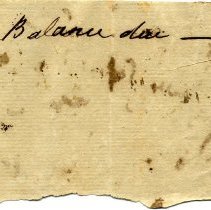 Balance due —